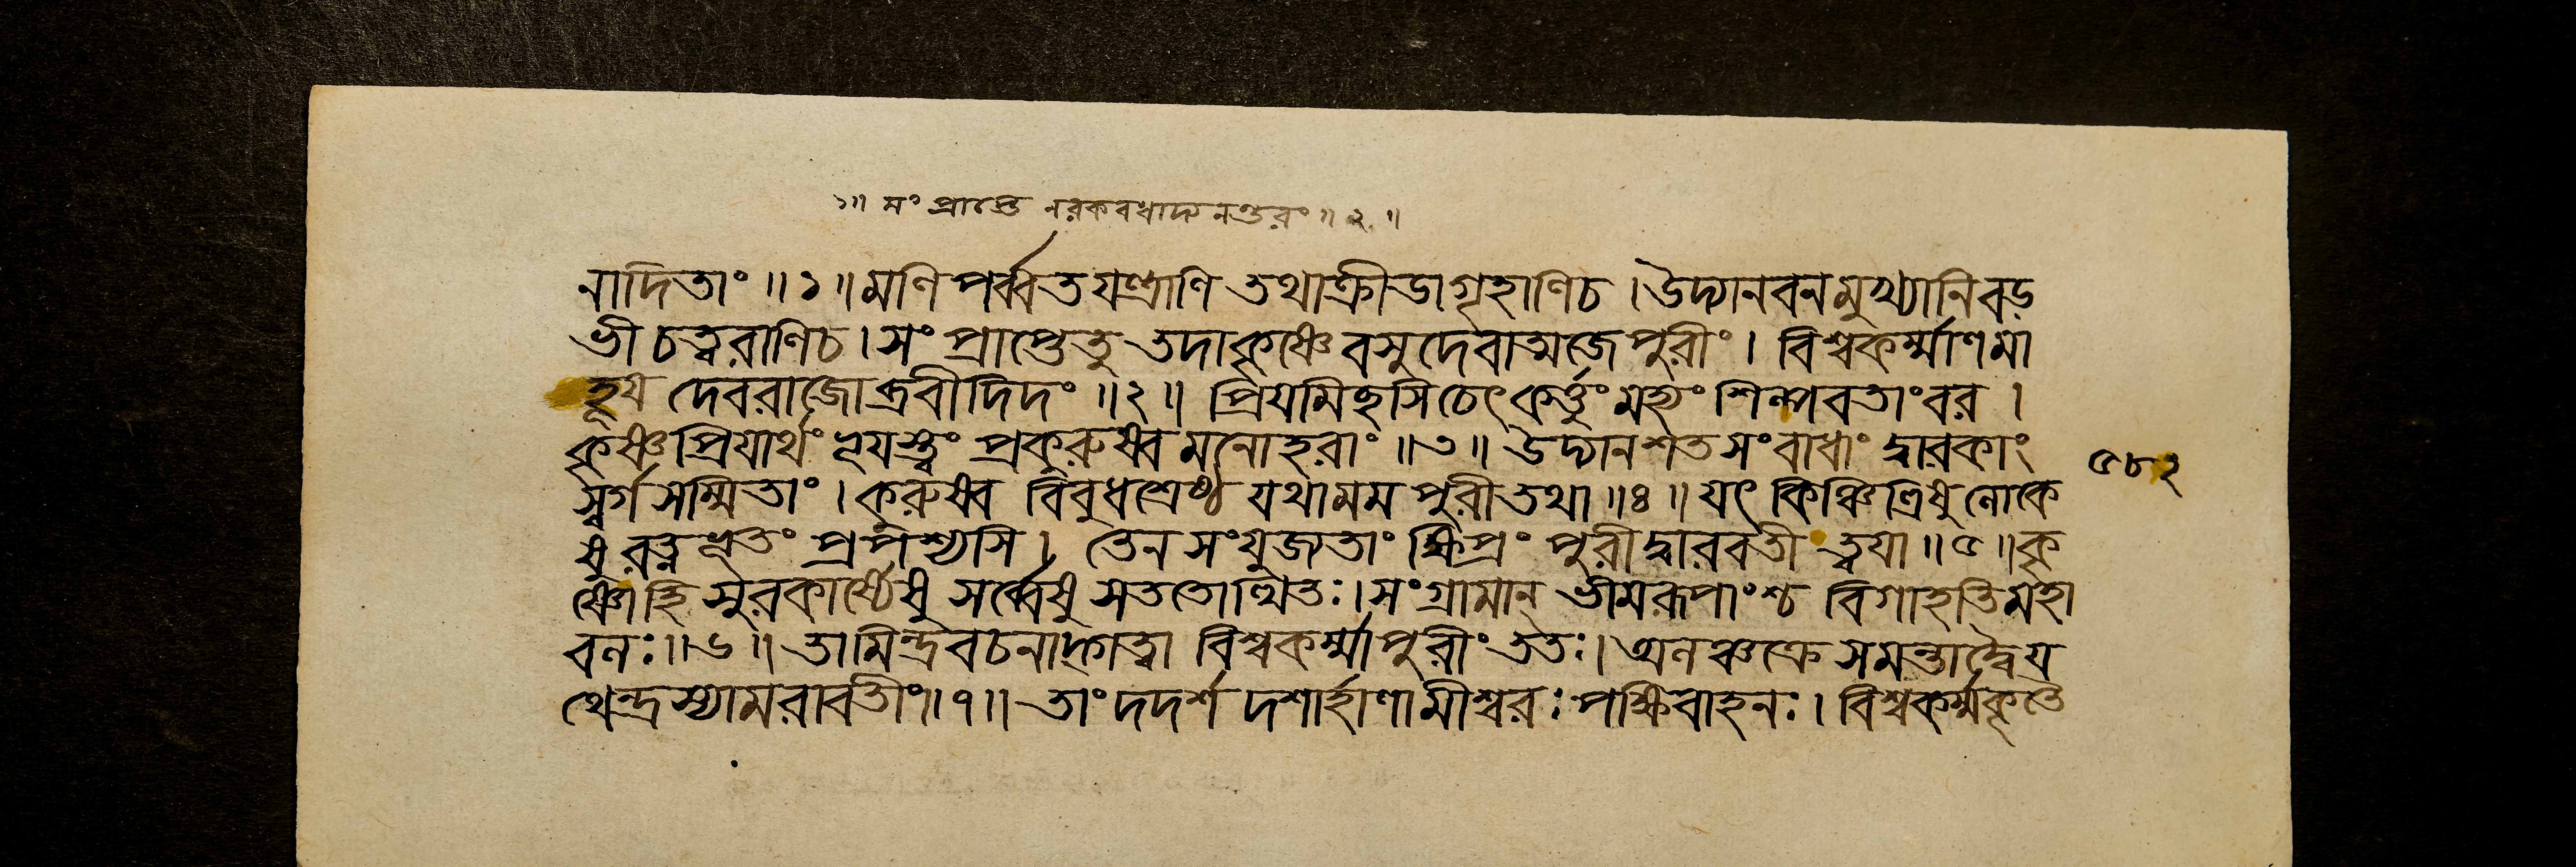 ১॥ সং প্রাপ্তে নরকবধাদ্যনন্তরং॥ ২ ॥
নাদিতাং ॥ ১ ॥ মণি পর্ব্বত যণ্ত্রাণি তথাক্রীডাগৃহাণিচ । উদ্যানবনমুখ্যানিবড়
ভীচত্বরাণিচ । সং প্রাপ্তেতু তদাকৃষ্ণে বসুদেবাত্মজে পুরীং । বিশ্বকর্ম্মাণমা
হূয দেবরাজোব্রবীদিদং ॥ ২ ॥ প্রিযমিছসিচেৎ কর্ত্তুং মহ্যং শিল্পবতাংবর ।
কৃষ্ণপ্রিযার্থং ভূযস্ত্বং প্রকুরুষ্ব মনোহরাং ॥ ৩ ॥ উদ্যানশতসংবাধাং দ্বারকাং
৫৮২
স্বর্গসম্মিতাং । কুরুষ্ব বিবুধশ্রেষ্ঠ যথামম পুরীতথা ॥ ৪ ॥ যৎ কিঞ্চিত্রিষুলোকে
ষুরত্নভূতং প্রপশ্যসি । তেন সংযুজ্যতাং ক্ষিপ্রং পুরীদ্বারবতী ত্বযা ॥ ৫ ॥ কৃ
ষ্ণোহি সুরকার্য্যেষু সর্ব্বেষু সততোত্থিতঃ । সংগ্রামান্ ভীমরূপাংশ্চ বিগাহতিমহা
বলঃ ॥ ৬ ॥ তামিন্দ্রবচনাদ্গত্বা বিশ্বকর্ম্মাপুরীং ততঃ । অলঞ্চক্রে সমন্তাদ্বৈয
থেন্দ্রস্যামরাবতীং ॥ ৭ ॥ তাং দদর্শ দশার্হাণামীশ্বরঃ পক্ষিবাহনঃ । বিশ্বকর্ম্মকৃতৈ